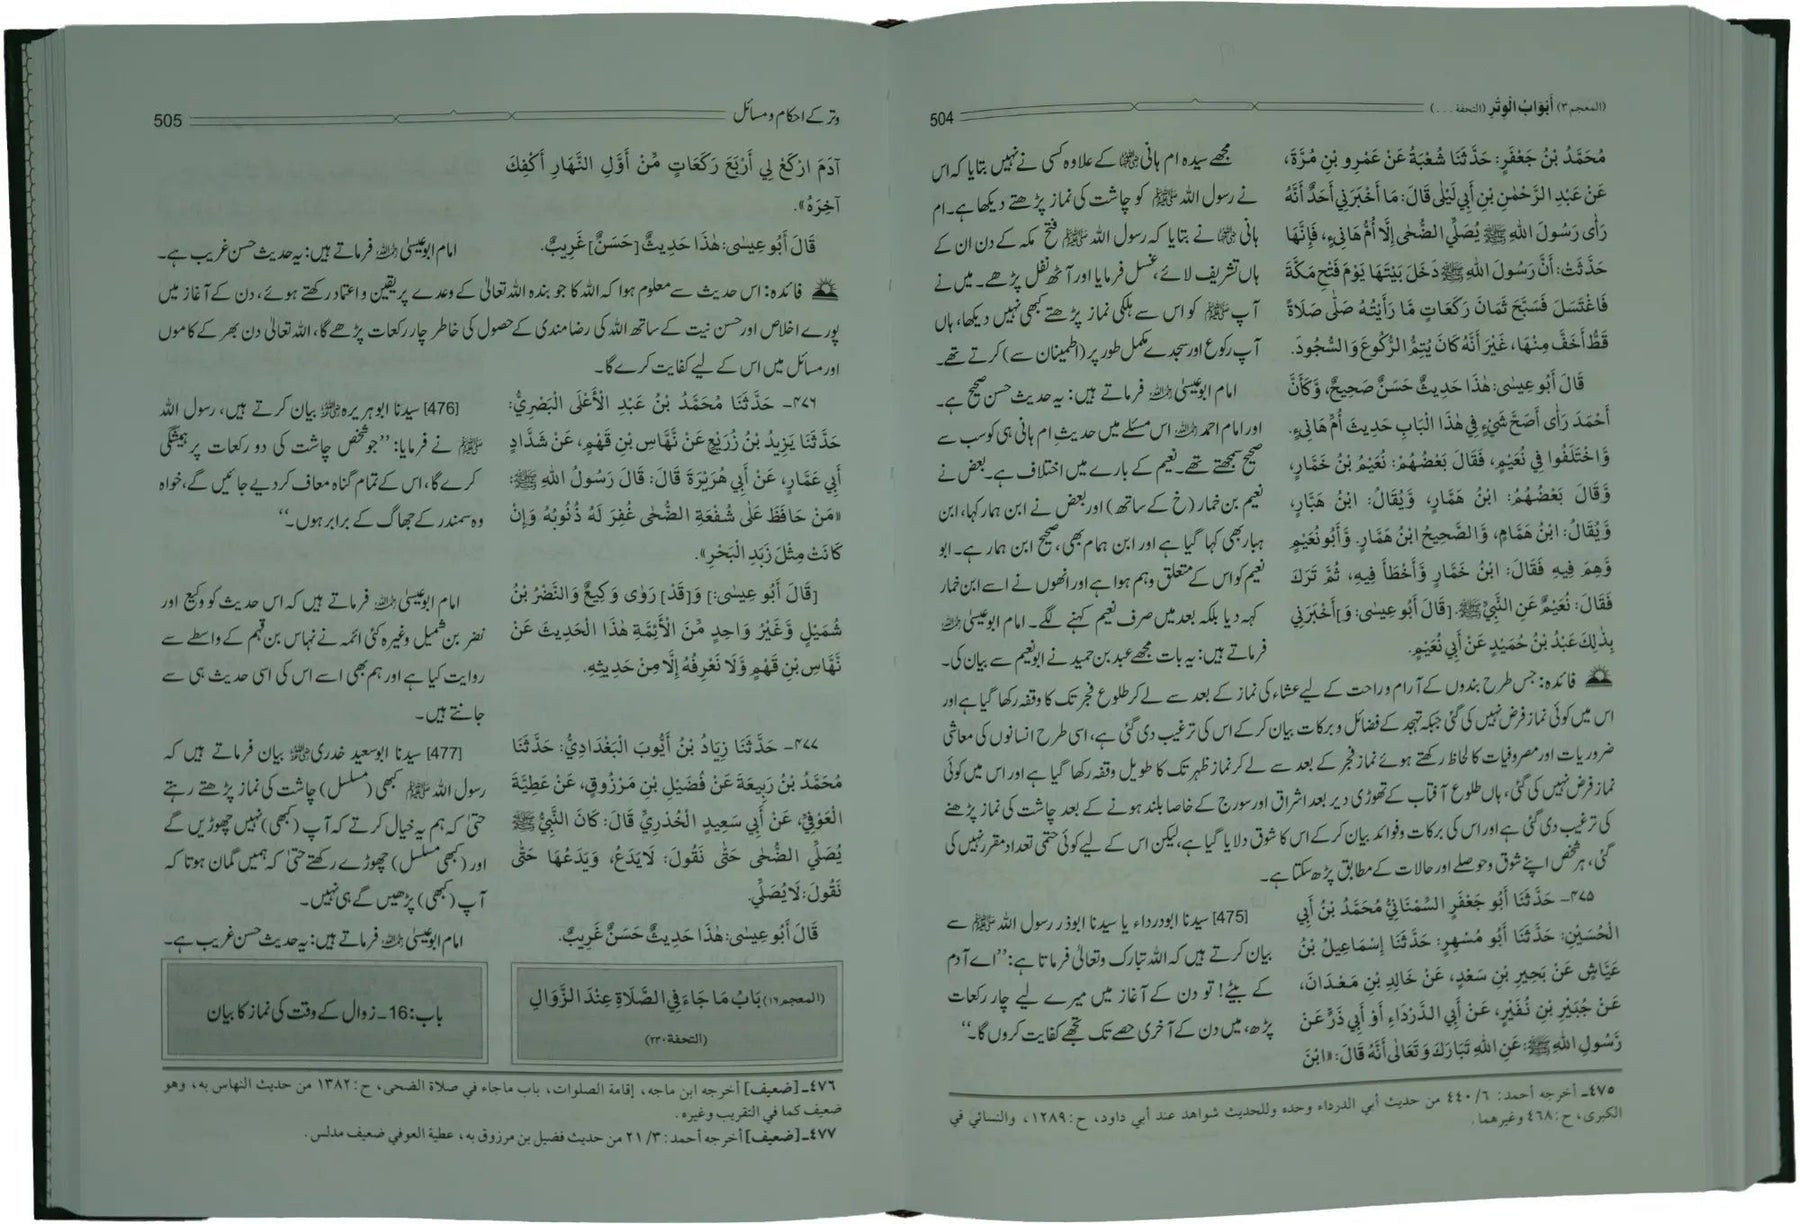 (المعجم ٣) أَبْوَابُ الْوِتْرِ (التحفة . . .)
504
مُحَمَّدُ بْنُ جَعْفَرٍ: حَدَّثَنَا شُعْبَةُ عَنْ عَمْرِو بْنِ مُرَّةَ،
عَنْ عَبْدِ الرَّحْمٰنِ بْنِ أَبِي لَيْلٰى قَالَ: مَا أَخْبَرَنِي أَحَدٌ أَنَّهُ
رَأٰى رَسُولَ اللهِ ﷺ يُصَلِّي الضُّحٰى إِلَّا أُمُّ هَانِيءٍ، فَإِنَّهَا
حَدَّثَتْ: أَنَّ رَسُولَ اللهِ ﷺ دَخَلَ بَيْتَهَا يَوْمَ فَتْحِ مَكَّةَ
فَاغْتَسَلَ فَسَبَّحَ ثَمَانَ رَكَعَاتٍ مَّا رَأَيْتُهُ صَلّٰى صَلَاةً
قَطُّ أَخَفَّ مِنْهَا، غَيْرَ أَنَّهُ كَانَ يُتِمُّ الرُّكُوعَ وَالسُّجُودَ.
قَالَ أَبُو عِيسٰى: هٰذَا حَدِيثٌ حَسَنٌ صَحِيحٌ، وَّكَأَنَّ
أَحْمَدَ رَأٰى أَصَحَّ شَيْءٍ فِي هٰذَا الْبَابِ حَدِيثَ أُمِّ هَانِيءٍ.
وَّاخْتَلَفُوا فِي نُعَيْمٍ، فَقَالَ بَعْضُهُمْ: نُعَيْمُ بْنُ خَمَّارٍ،
وَّقَالَ بَعْضُهُمُ: ابْنُ هَمَّارٍ، وَّيُقَالُ: ابْنُ هَبَّارٍ،
وَّيُقَالُ: ابْنُ هَمَّامٍ، وَّالصَّحِيحُ ابْنُ هَمَّارٍ. وَّأَبُو نُعَيْمٍ
وَّهِمَ فِيهِ فَقَالَ: ابْنُ خَمَّارٍ وَّأَخْطَأَ فِيهِ، ثُمَّ تَرَكَ
فَقَالَ: نُعَيْمٌ عَنِ النَّبِيِّ ﷺ. [قَالَ أَبُو عِيسٰى: وَ]أَخْبَرَنِي
بِذٰلِكَ عَبْدُ بْنُ حُمَيْدٍ عَنْ أَبِي نُعَيْمٍ.
مجھے سیدہ ام ہانی رضی اللہ عنہا کے علاوہ کسی نے نہیں بتایا کہ اس
نے رسول اللہ ﷺ کو چاشت کی نماز پڑھتے دیکھا ہے۔ ام
ہانی رضی اللہ عنہا نے بتایا کہ رسول اللہ ﷺ فتح مکہ کے دن ان کے
ہاں تشریف لائے، غسل فرمایا اور آٹھ نفل پڑھے۔ میں نے
آپ ﷺ کو اس سے ہلکی نماز پڑھتے کبھی نہیں دیکھا، ہاں
آپ رکوع اور سجدے مکمل طور پر (اطمینان سے) کرتے تھے۔
امام ابوعیسیٰ رحمہ اللہ فرماتے ہیں: یہ حدیث حسن صحیح ہے۔
اور امام احمد رحمہ اللہ اس مسئلے میں حدیثِ ام ہانی ہی کو سب سے
صحیح سمجھتے تھے۔ نعیم کے بارے میں اختلاف ہے۔ بعض نے
نعیم بن خمار (خ کے ساتھ) اور بعض نے ابن ہمار کہا، ابن
ہبار بھی کہا گیا ہے اور ابن ہمام بھی، صحیح ابن ہمار ہے۔ ابو
نعیم کو اس کے متعلق وہم ہوا ہے اور انھوں نے اسے ابن خمار
کہہ دیا بلکہ بعد میں صرف نعیم کہنے لگے۔ امام ابوعیسیٰ رحمہ اللہ
فرماتے ہیں: یہ بات مجھے عبد بن حمید نے ابونعیم سے بیان کی۔
فائدہ: جس طرح بندوں کے آرام و راحت کے لیے عشاء کی نماز کے بعد سے لے کر طلوع فجر تک کا وقفہ رکھا گیا ہے اور
اس میں کوئی نماز فرض نہیں کی گئی جبکہ تہجد کے فضائل و برکات بیان کر کے اس کی ترغیب دی گئی ہے، اسی طرح انسانوں کی معاشی
ضروریات اور مصروفیات کا لحاظ رکھتے ہوئے نماز فجر کے بعد سے لے کر نماز ظہر تک کا طویل وقفہ رکھا گیا ہے اور اس میں کوئی
نماز فرض نہیں کی گئی، ہاں طلوع آفتاب کے تھوڑی دیر بعد اشراق اور سورج کے خاصا بلند ہونے کے بعد چاشت کی نماز پڑھنے
کی ترغیب دی گئی ہے اور اس کی برکات و فوائد بیان کر کے اس کا شوق دلایا گیا ہے، لیکن اس کے لیے کوئی حتمی تعداد مقرر نہیں کی
گئی، ہر شخص اپنے شوق و حوصلے اور حالات کے مطابق پڑھ سکتا ہے۔
٤٧٥- حَدَّثَنَا أَبُو جَعْفَرٍ السِّمْنَانِيُّ مُحَمَّدُ بْنُ أَبِي
الْحُسَيْنِ: حَدَّثَنَا أَبُو مُسْهِرٍ: حَدَّثَنَا إِسْمَاعِيلُ بْنُ
عَيَّاشٍ عَنْ بَحِيرِ بْنِ سَعْدٍ، عَنْ خَالِدِ بْنِ مَعْدَانَ،
عَنْ جُبَيْرِ بْنِ نُفَيْرٍ، عَنْ أَبِي الدَّرْدَاءِ أَوْ أَبِي ذَرٍّ عَنْ
رَّسُولِ اللهِ ﷺ: عَنِ اللهِ تَبَارَكَ وَتَعَالٰى أَنَّهُ قَالَ: «ابْنَ
[475] سیدنا ابودرداء یا سیدنا ابوذر رسول اللہ ﷺ سے
بیان کرتے ہیں کہ اللہ تبارک وتعالیٰ فرماتا ہے: ’’اے آدم
کے بیٹے! تو دن کے آغاز میں میرے لیے چار رکعات
پڑھ، میں دن کے آخری حصے تک تجھے کفایت کروں گا۔‘‘
٤٧٥ـ أخرجه أحمد: ٦/ ٤٤٠ من حديث أبي الدرداء وحده وللحديث شواهد عند أبي داود، ح:١٢٨٩، والنسائي في
الكبرى، ح:٤٦٨ وغيرهما.
وتر کے احکام و مسائل
505
آدَمَ ارْكَعْ لِي أَرْبَعَ رَكَعَاتٍ مِّنْ أَوَّلِ النَّهَارِ أَكْفِكَ
آخِرَهُ».
قَالَ أَبُو عِيسٰى: هٰذَا حَدِيثٌ [حَسَنٌ] غَرِيبٌ.
امام ابوعیسیٰ رحمہ اللہ فرماتے ہیں: یہ حدیث حسن غریب ہے۔
فائدہ: اس حدیث سے معلوم ہوا کہ اللہ کا جو بندہ اللہ تعالیٰ کے وعدے پر یقین و اعتماد رکھتے ہوئے، دن کے آغاز میں
پورے اخلاص اور حسن نیت کے ساتھ اللہ کی رضامندی کے حصول کی خاطر چار رکعات پڑھے گا، اللہ تعالیٰ دن بھر کے کاموں
اور مسائل میں اس کے لیے کفایت کرے گا۔
٤٧٦- حَدَّثَنَا مُحَمَّدُ بْنُ عَبْدِ الْأَعْلَى الْبَصْرِيُّ:
حَدَّثَنَا يَزِيدُ بْنُ زُرَيْعٍ عَنْ نَّهَّاسِ بْنِ قَهْمٍ، عَنْ شَدَّادٍ
أَبِي عَمَّارٍ، عَنْ أَبِي هُرَيْرَةَ قَالَ: قَالَ رَسُولُ اللهِ ﷺ:
«مَنْ حَافَظَ عَلٰى شُفْعَةِ الضُّحٰى غُفِرَ لَهُ ذُنُوبُهُ وَإِنْ
كَانَتْ مِثْلَ زَبَدِ الْبَحْرِ».
[476] سیدنا ابوہریرہ رضی اللہ عنہ بیان کرتے ہیں، رسول اللہ
ﷺ نے فرمایا: ’’جو شخص چاشت کی دو رکعات پر ہمیشگی
کرے گا، اس کے تمام گناہ معاف کر دیے جائیں گے، خواہ
وہ سمندر کے جھاگ کے برابر ہوں۔‘‘
[قَالَ أَبُو عِيسٰى:] وَ[قَدْ] رَوٰى وَكِيعٌ وَالنَّضْرُ بْنُ
شُمَيْلٍ وَّغَيْرُ وَاحِدٍ مِّنَ الْأَئِمَّةِ هٰذَا الْحَدِيثَ عَنْ
نَّهَّاسِ بْنِ قَهْمٍ وَّلَا نَعْرِفُهُ إِلَّا مِنْ حَدِيثِهِ.
امام ابوعیسیٰ رحمہ اللہ فرماتے ہیں کہ اس حدیث کو وکیع اور
نضر بن شمیل وغیرہ کئی ائمہ نے نہاس بن قہم کے واسطے سے
روایت کیا ہے اور ہم بھی اسے اس کی اسی حدیث ہی سے
جانتے ہیں۔
٤٧٧- حَدَّثَنَا زِيَادُ بْنُ أَيُّوبَ الْبَغْدَادِيُّ: حَدَّثَنَا
مُحَمَّدُ بْنُ رَبِيعَةَ عَنْ فُضَيْلِ بْنِ مَرْزُوقٍ، عَنْ عَطِيَّةَ
الْعَوْفِيِّ، عَنْ أَبِي سَعِيدٍ الْخُدْرِيِّ قَالَ: كَانَ النَّبِيُّ ﷺ
يُصَلِّي الضُّحٰى حَتّٰى نَقُولَ: لَا يَدَعُ، وَيَدَعُهَا حَتّٰى
نَقُولَ: لَا يُصَلِّي.
[477] سیدنا ابوسعید خدری رضی اللہ عنہ بیان فرماتے ہیں کہ
رسول اللہ ﷺ کبھی (مسلسل) چاشت کی نماز پڑھتے رہتے
حتیٰ کہ ہم یہ خیال کرتے کہ آپ (کبھی) نہیں چھوڑیں گے
اور (کبھی مسلسل) چھوڑے رکھتے حتیٰ کہ ہمیں گمان ہوتا کہ
آپ (کبھی) پڑھیں گے ہی نہیں۔
قَالَ أَبُو عِيسٰى: هٰذَا حَدِيثٌ حَسَنٌ غَرِيبٌ.
امام ابوعیسیٰ رحمہ اللہ فرماتے ہیں: یہ حدیث حسن غریب ہے۔
(المعجم ١٦) بَابُ مَا جَاءَ فِي الصَّلَاةِ عِنْدَ الزَّوَالِ
(التحفة ٢٣٠)
باب: 16۔ زوال کے وقت کی نماز کا بیان
٤٧٦ـ [ضعيف] أخرجه ابن ماجه، إقامة الصلوات، باب ماجاء في صلاة الضحى، ح:١٣٨٢ من حديث النهاس به، وهو
ضعيف كما في التقريب وغيره.
٤٧٧ـ [ضعيف] أخرجه أحمد: ٣/ ٢١ من حديث فضيل بن مرزوق به، عطية العوفي ضعيف مدلس.